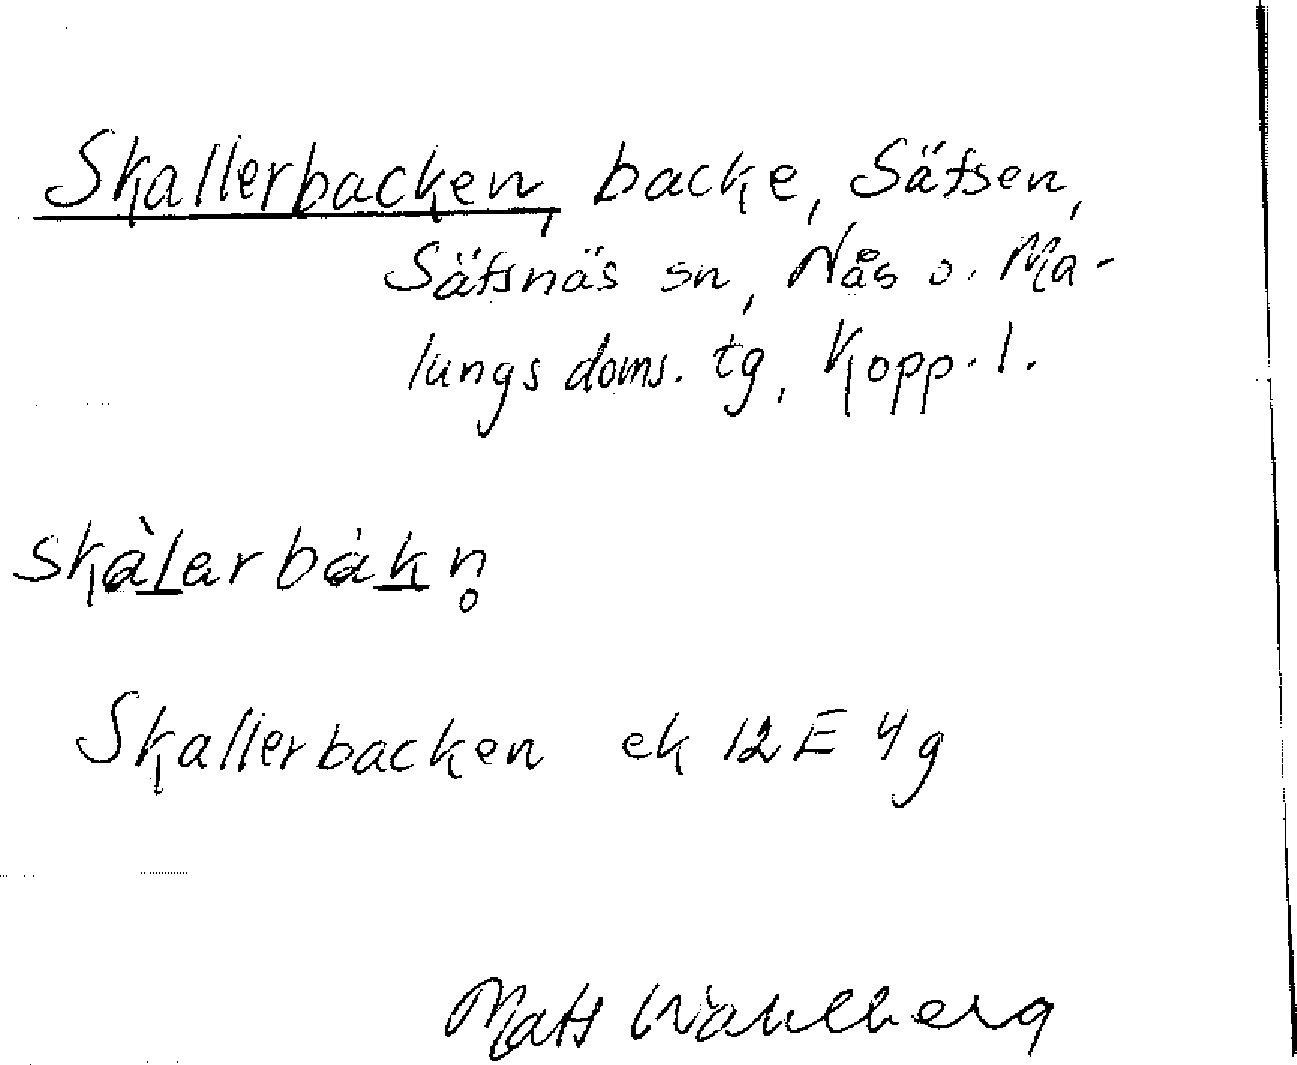 Skallerbacken, backe, Sätsen,
Säfsnäs sn, Nås o. Ma-
lungs doms. tg, Kopp. l.
skàlarbákn̥
Skallerbacken ek 12E 4g
Mats Wahlberg